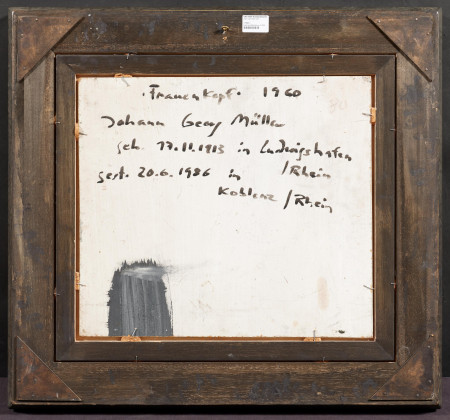 "Frauenkopf" 1960
Johann Georg Müller
geb. 17.11.1913 in Ludwigshafen
/Rhein
gest. 20.6.1986 in
Koblenz /Rhein